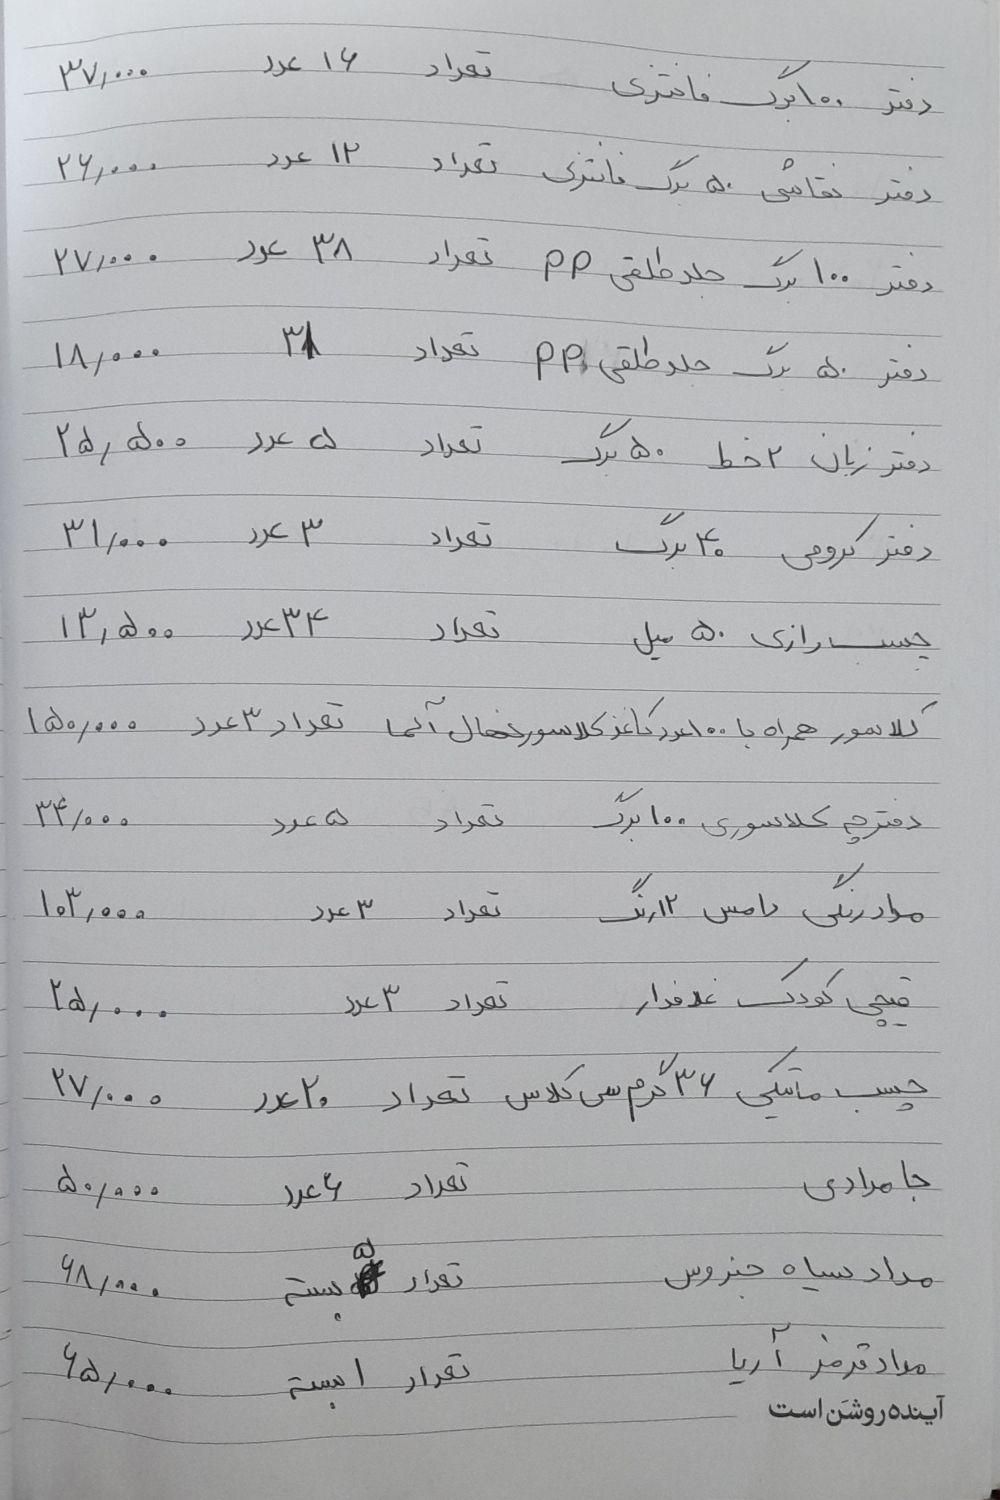 دفتر ۱۰۰ برگ فانتزی تعداد ۱۶ عدد ۳۷,۰۰۰
دفتر نقاشی ۵۰ برگ فانتزی تعداد ۱۲ عدد ۲۶,۰۰۰
دفتر ۱۰۰ برگ جلد طلقی PP تعداد ۳۸ عدد ۲۷,۰۰۰
دفتر ۵۰ برگ جلد طلقی PP تعداد ۳۱ ۱۸,۰۰۰
دفتر زبان ۲ خط ۵۰ برگ تعداد ۵ عدد ۲۵,۵۰۰
دفتر کرومی ۴۰ برگ تعداد ۳ عدد ۳۱,۰۰۰
چسب رازی ۵۰ میل تعداد ۳۴ عدد ۱۳,۵۰۰
کلاسور همراه با ۱۰۰ عدد کاغذ کلاسور خصال آلما تعداد ۳ عدد ۱۵۰,۰۰۰
دفترچه کلاسوری ۱۰۰ برگ تعداد ۵ عدد ۳۴,۰۰۰
مداد رنگی دامس ۱۲ رنگ تعداد ۳ عدد ۱۰۳,۰۰۰
قیچی کودک غلافدار تعداد ۳ عدد ۲۵,۰۰۰
چسب ماتیکی ۳۶ گرم سی کلاس تعداد ۲۰ عدد ۲۷,۰۰۰
جا مدادی تعداد ۶ عدد ۵۰,۰۰۰
مداد سیاه جنروس تعداد ۵ بسته ۶۸,۰۰۰
مداد قرمز آریا تعداد ۱ بسته ۶۵,۰۰۰
آینده روشن است